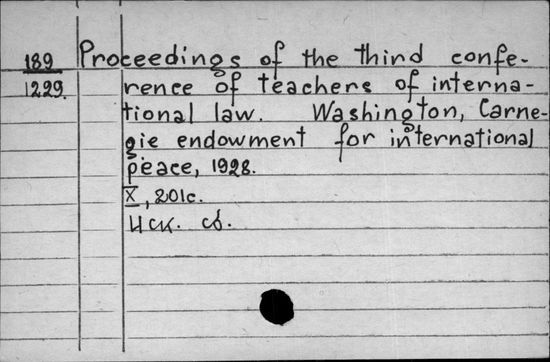 189 Proceedings of the third confe-
1229. rence of teachers of interna-
tional law. Washington, Carne-
gie endowment for international
peace, 1928.
X, 201c.
Иск. сб.